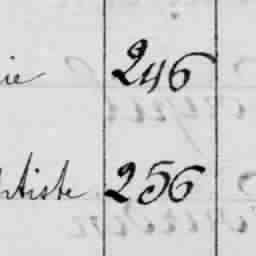 ie 246
tiste 256